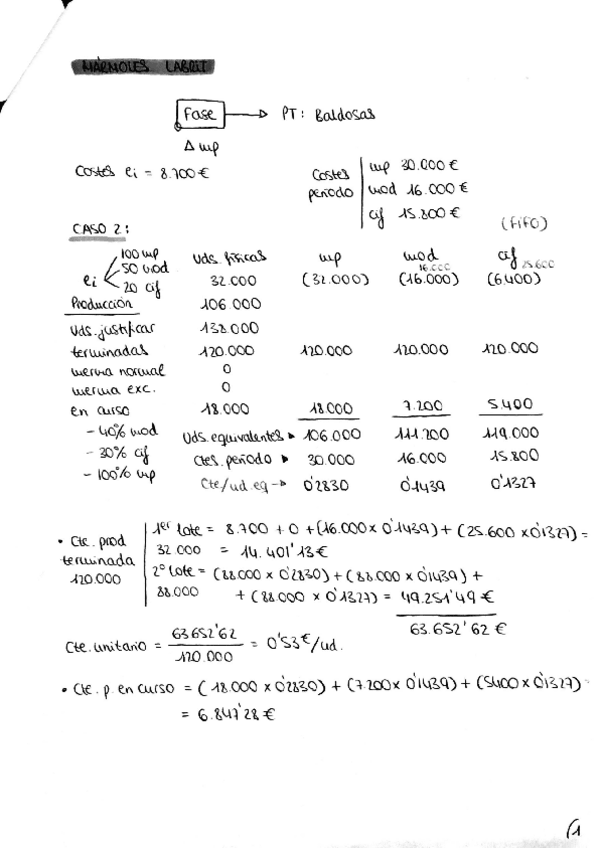 MÁRMOLES LABRIT
Fase → PT: Baldosas
Δ mp
Costes ei = 8.700 €
Costes periodo
mp 30.000 €
mod 16.000 €
cif 15.800 €
(FIFO)
CASO 2:
ei 100 mp 50 mod 20 cif
Uds. físicas mp mod cif
16.000 25.600
32.000 (32.000) (16.000) (6.400)
Producción 106.000
Uds. justificar 138.000
terminadas 120.000 120.000 120.000 120.000
merma normal 0
merma exc. 0
en curso 18.000 18.000 7.200 5.400
- 40% mod Uds. equivalentes ▸ 106.000 111.200 119.000
- 30% cif Ctes. periodo ▸ 30.000 16.000 15.800
- 100% mp Cte/ud. eq → 0'2830 0'1439 0'1327
• Cte. prod terminada 120.000
1er lote = 8.700 + 0 + (16.000 x 0'1439) + (25.600 x 0'1327) =
32.000 = 14.401'13 €
2º lote = (88.000 x 0'2830) + (88.000 x 0'1439) +
88.000 + (88.000 x 0'1327) = 49.251'49 €
63.652'62 €
Cte. unitario = 63.652'62 / 120.000 = 0'53 €/ud.
• Cte. p. en curso = (18.000 x 0'2830) + (7.200 x 0'1439) + (5400 x 0'1327) =
= 6.847'28 €
(1